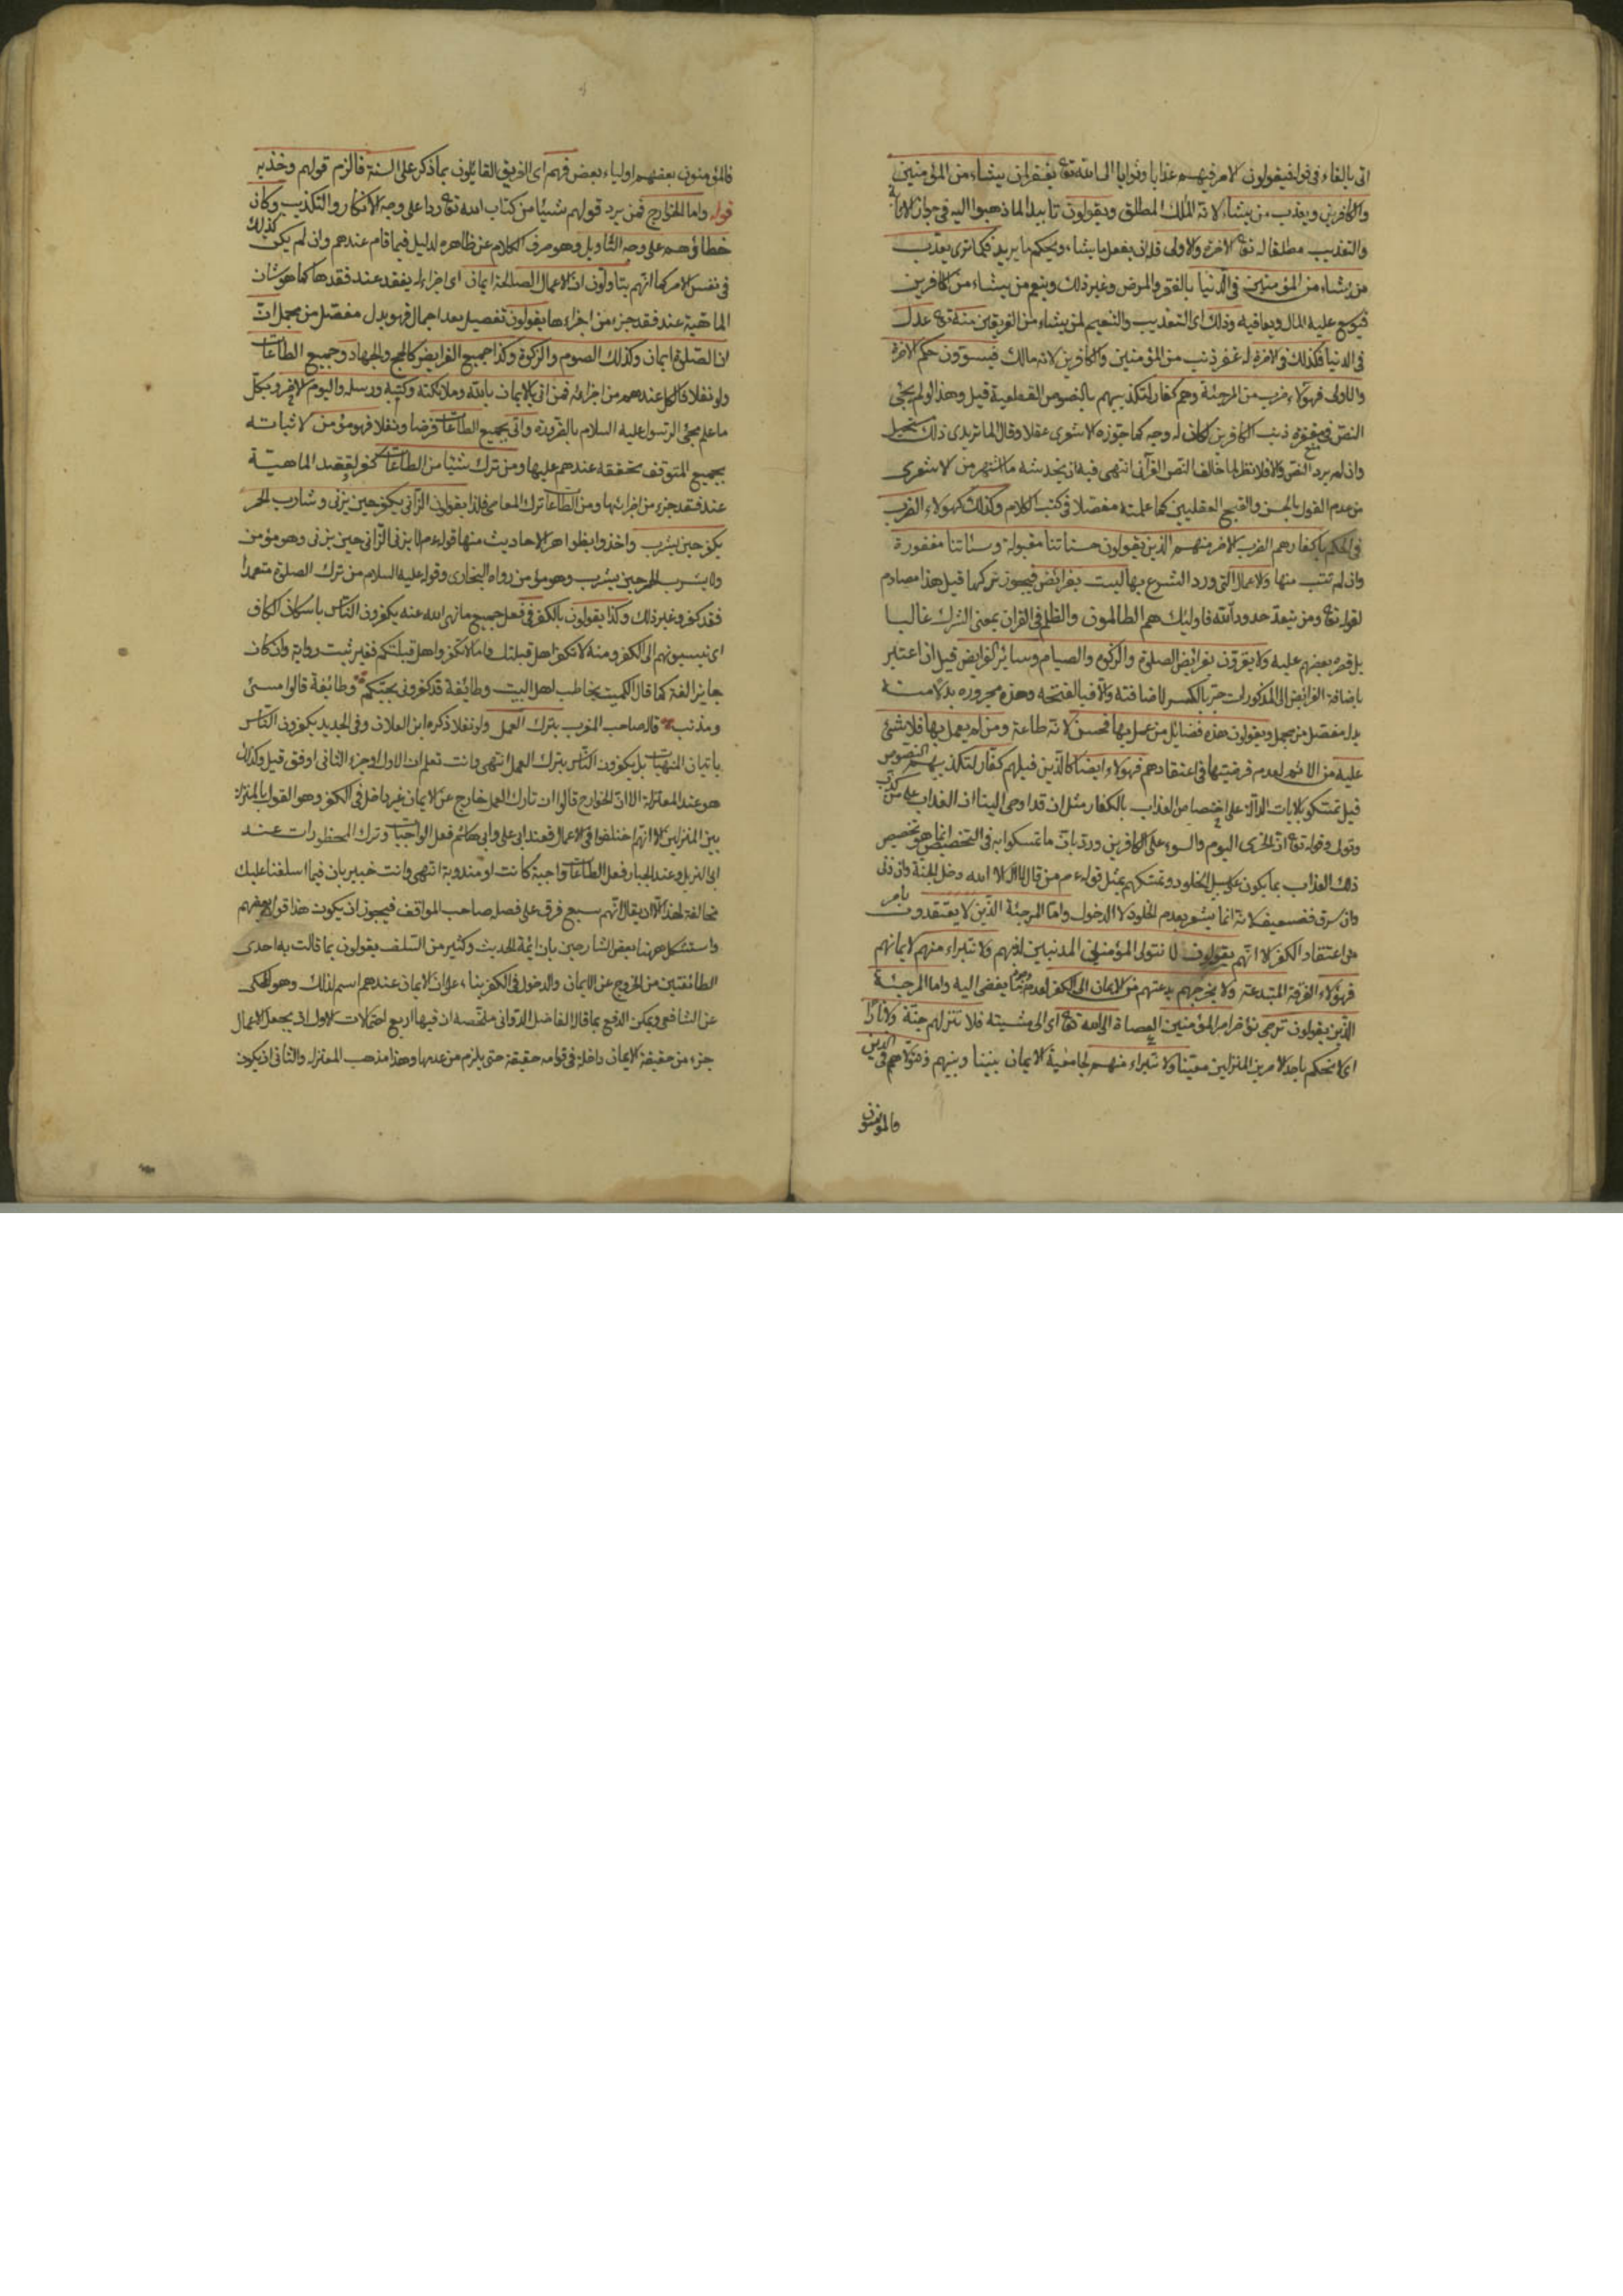 اتى بالفاء فى قوله فيقولون لامر فيهم عذابا وثوابا الى الله تع يغفر لمن يشاء من المؤمنين
والكافرين ويعذب من يشاء لانه الملك المطلق ويقولون تأييدا لما ذهبوا اليه فى جواز الاثابة
والتعذيب مطلقا له تع الاخرة والاولى فلان يفعل ما يشاء ويحكم ما يريد فكما ترى يعذب
من يشاء من المؤمنين فى الدنيا بالفقر والمرض وغير ذلك وينعم من يشاء من الكافرين
فيوسع عليه المال ويعافيه وذلك اى التعذيب والتنعيم لمن يشاء من الفريقين منه تع عدل
فى الدنيا فكذلك فى الاخرة له غفر ذنب من المؤمنين والكافرين لانه مالك فيسوون حكم الاخرة
والاولى فهؤلاء ضرب من المرجئة وهم كفار لتكذيبهم بالنصوص القطعية قيل وهذا لو لم يجئ
النص فى مغفرة ذنب الكافرين لكان له وجه كما جوزه الاشعرى عقلا وقال الماتريدى ذلك مستحيل
وان لم يرد النص والا فلا نظر لما خالف النص القرآنى انتهى فيه ان يخدشه ما اشتهر من الاشعرى
من عدم القول بالحسن والقبح العقليين كما علمته مفصلا فى كتب الكلام وكذلك كهؤلاء الضرب
فى الحكم باكفارهم الضرب الاخر منهم الذين يقولون حسناتنا مقبولة وسيئاتنا مغفورة
وان لم نتب منها والاعمال التى ورد الشرع بها ليست بفرائض فيجوز تركها قيل هذا مصادم
لقوله تع ومن يتعد حدود الله فاولئك هم الظالمون والظلم فى القران بمعنى الشرك غالبا
بل قصره بعضهم عليه ولا يقرون بفرائض الصلوة والزكوة والصيام وسائر الفرايض قيل ان اعتبر
باضافة الفرائض الى المذكورات جر بالكسر لاضافته والا فبالفتحة وهذه مجروره بدلا منه
بدل مفصل من مجمل ويقولون هذه فضائل من عمل بها فحسن لانه طاعة ومن لم يعمل بها فلا شئ
عليه من الاثم لعدم فرضيتها فى اعتقادهم فهؤلاء ايضا كالذين قبلهم كفار لتكذيبهم النصوص
قيل تمسكو بالايات الدالة على اختصاص العذاب بالكفار مثل ان قد اوحى الينا ان العذاب على من كذب
وتولى وقوله تع ان الخزى اليوم والسوء على الكافرين ورد بان ما تمسكوا به فى التخصيص انما هو تخصيص
ذلك العذاب بما يكون على سبيل الخلود وتمسكهم بمثل قوله عم من قال لا اله الا الله دخل الجنة وان زنى
وان سرق فضعيف لانه انما يشعر بعدم الخلود لا الدخول واما المرجئة الذين لا يعتقدون بامر
من اعتقاد الكفر الا انهم يقولون لا نتولى المؤمنين المذنبين لذنبهم ولا نتبراء منهم لايمانهم
فهؤلاء الفرقة المبتدعة ولا يخرجهم بدعتهم من الايمان الى الكفر لعدم جزم بما يفضى اليه واما المرجئة
الذين يقولون نرجى نؤخر امر المؤمنين العصاة الى الله تع اى الى مشيته فلا ننزلهم جنة ولا نارا
اى لا نحكم باحد الامرين المنزلين معينا ولا نتبراء منهم لجامعية الايمان بيننا وبينهم ونتولاهم فى الدين
فالمؤمنون
فالمؤمنون بعضهم اولياء بعض فهم اى الفريق القائلون بما ذكر على السنة فالزم قولهم وخذ به
قوله واما الخوارج فمن يرد قولهم شيئا من كتاب الله تع ردا على وجه الانكار والتكذيب وكان
خطاؤهم على وجه التأويل وهو صرف الكلام عن ظاهره لدليل فيما قام عندهم وان لم يكن كذلك
فى نفس الامر كما انهم يتاولون ان الاعمال الصالحة ايمان اى اجزاء له يفقد عند فقدها كما هو شان
الماهية عند فقد جزء من اجزاءها يقولون تفصيل بعد اجمال فهو بدل مفصل من مجمل ان
ان الصلوة ايمان وكذلك الصوم والزكوة وكذا جميع الفرايض كالحج والجهاد وجميع الطاعات
ولو نفلا فالكل عندهم من اجزائه فمن اتى بالايمان بالله وملائكته وكتبه ورسله واليوم الاخر وبكل
ما علم مجئ الرسول عليه السلام بالضرورة واتى بجميع الطاعات فرضا ونفلا فهو مؤمن لاثباته
بجميع المتوقف تحققه عندهم عليها ومن ترك شيئا من الطاعات كفر لفقد الماهية
عند فقد جزء من اجزائها ومن الطاعات ترك المعاصى فلذا يقولون الزانى يكفر حين يزنى وشارب الخمر
يكفر حين يشرب واخذوا بظواهر الاحاديث منها قوله عم لا يزنى الزانى حين يزنى وهو مؤمن
ولا يشرب الخمر حين يشرب وهو مؤمن رواه البخارى وقوله عليه السلام من ترك الصلوة متعمدا
فقد كفر وغير ذلك وكذا يقولون بالكفر فى فعل جميع ما نهى الله عنه يكفرون الناس باسكان الكاف
اى ينسبونهم الى الكفر ومنه لا تكفر اهل قبلتك واما لا تكفروا اهل قبلتكم فغير ثبت رواية وان كان
جايز الغة كما قال الكميت يخاطب اهل البيت وطائفة قد اكفرونى بحبكم وطائفة قالوا مسئ
ومذنب قاله صاحب المغرب بترك العمل ولو نفلا ذكره ابن العلاف وفى الجديد يكفرون الناس
باتيان المنهيات بل يكفرون الناس بترك العمل انتهى وانت تعلم ان الاول وجزء الثانى اوفق قيل وكذلك
هو عند المعتزلة الا ان الخوارج قالوا ان تارك العمل خارج عن الايمان غير داخل فى الكفر وهو القول بالمنزلة
بين المنزلين الا انهم اختلفوا فى الاعمال فعند ابى على وابى هاشم فعل الواجبات وترك المحظورات عند
ابى الهزيل وعبد الجبار فعل الطاعات واجبة كانت او مندوبة انتهى وانت خبير بان فيما اسلفنا عليك
مخالفة لهذا الا ان يقال انهم سبع فرق على فصل صاحب المواقف فيجوز ان يكون هذا قول بعضهم
واستشكل ههنا بعض الشارحين بان ائمة الحديث وكثير من السلف يقولون بما قالت به احدى
الطائفتين من الخروج عن الايمان والدخول فى الكفر بناء على ان الايمان عندهم اسم لذلك وهو المحكى
عن الشافعى ويمكن الدفع بما قال الفاضل الدوانى ملخصه ان فيها اربع احتمالات الاول ان يجعل الاعمال
جزء من حقيقة الايمان داخلة فى قوامه حقيقة حتى يلزم من عدمها وهذا مذهب المعتزله والثانى ان يكون